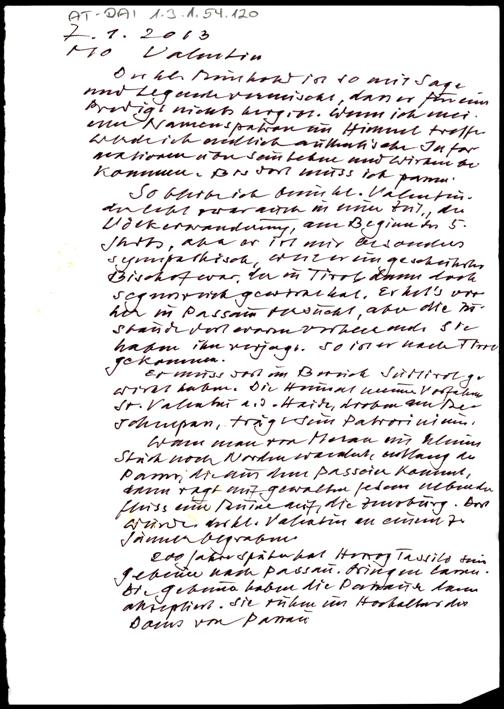 AT-DAI 1.3.1.54.120
7.1.2013
Mo Valentin
Der hl. ist so mit Sage
und Legende vermischt, dass er für eine
Predigt nichts hergibt. Wenn ich mei-
nen Namenspatron im Himmel treffe
werde ich endlich authentische Infor
mationen über sein Leben und Wirken be
kommen. Bis dort muss ich passen.
So bleibe ich beim hl. Valentin.
der lebt zwar auch in einer Zeit, der
Völkerwanderung, am Beginn des 5.
Jhrts, aber er ist mir besonders
sympathisch, weil er ein gescheiterter
Bischof war, der in Tirol dann doch
segensreich gewirkt hat. Er hat's vor
her in Passau versucht, aber die Zu-
stände dort waren verheerend. Sie
haben ihn verjagt. So ist er nach Tirol
gekommen.
Er muss dort im Bereich Südtirol ge
wirkt haben. Die Heimat meiner Vorfahren
St. Valentin a.d. Haide, droben am
, trägt sein Patrocinium.
Wenn man von Meran ein kleines
Stück nach Norden wandert, entlang der
Passer, die aus dem Passeier kommt,
dann ragt auf gewaltigen Felsen neben dem
Fluss eine Ruine auf, die Zenoburg. Dort
wurde der hl. Valentin an einem 7.
Jänner begraben.
200 Jahre später hat Herzog Tassilo sein
Gebeine nach Passau bringen lassen.
Die Gebeine haben die Passauer dann
akzeptiert. Sie ruhen im Hochaltar des
Doms von Passau